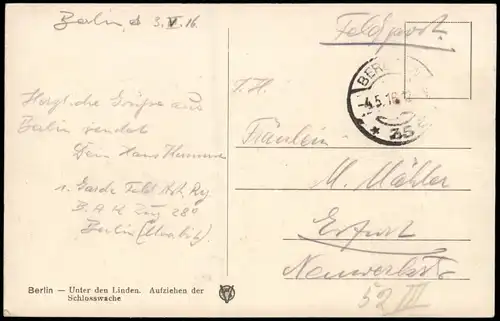 Berlin, d 3.V.16.
Herzliche Grüße aus
Berlin sendet
Dein Hans
1. Garde Feld Art. Rg.
B. A. K. Zug 28
Berlin (Moabit)
Berlin — Unter den Linden. Aufziehen der
Schlosswache
Feldpost.
BERLIN
4.5.16.12
* 35
T. H.
Fräulein
M. Mähler
Erfurt
52 III